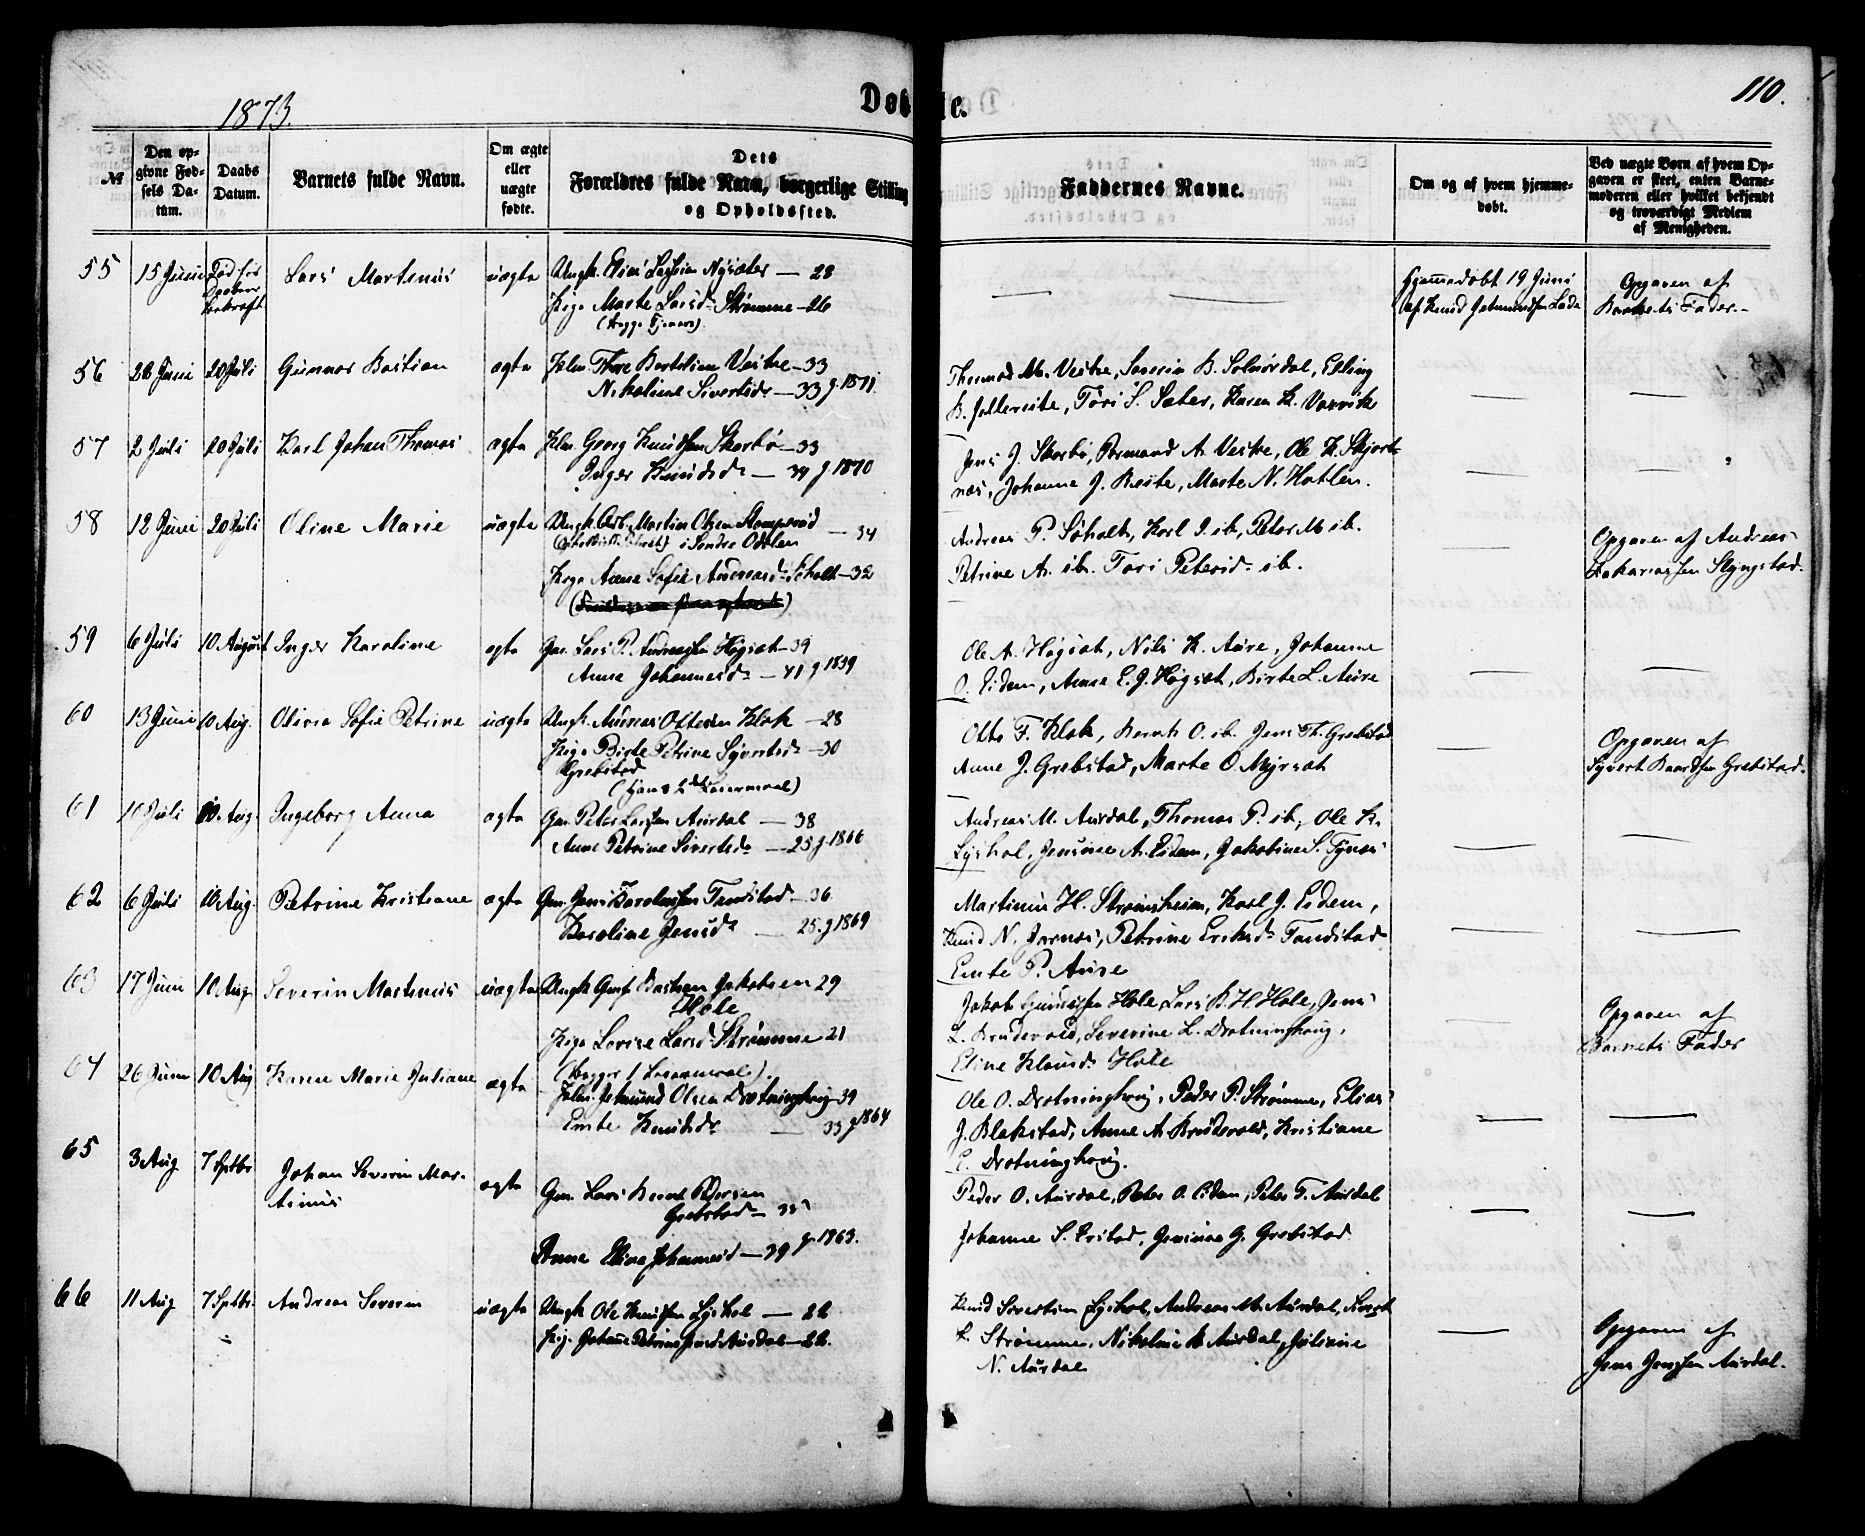 1873.
Døbte.
110.
№
Den op-
givne Fød-
sels Da-
tum.
Daabs
Datum.
Barnets fulde Navn.
Om ægte
eller
uægte
fødte.
Dets
Forældres fulde Navn, borgerlige Stilling
og Opholdssted.
Faddernes Navne.
Om og af hvem hjemme-
døbt.
Ved uægte Børn af hvem Op-
gaven er skeet, enten Barne-
moderen eller hvilket bekjendt
og troværdigt Medlem
af Menigheden.
55
15 Juni
Død før
Lars Martinus
uægte
Ungk. Elias Nysæter — 28
Pige Marte Larsd. Strømme — 26
Hjemmedøbt 19 Juni
af Knud
Opgaven af
Barnets Fader.
56
26 Juni
20 Juli
Gunnar Bastian
ægte
Vestre — 33
Nikoline Sivertsd. — 33 g 1871.
Thormod M. Vestre, Severin B. Solnørdal, Elling
K. Tori S. Sæter, Karen K. Vaxvik
57
2 Juli
20 Juli
Karl Johan Thomas
ægte
Georg Knudsen Skorbø — 33
Inger Knudsd. — 34 g 1870
Jens J. Skorbø, A. Vestre, Ole K. Skjort-
næs, Johanne J. Marte N. Hatlen.
58
12 Juni
20 Juli
Oline Marie
uægte
Ungk. Arb. Martin Olsen — 34
i Søndre Odalen
Pige Anne Sofie Andreasd. Søholt — 32
Andreas P. Søholt, Karl ib, Peter M. ib.
Petrine A. ib. Tori Petersd. ib.
Opgaven af Andreas
Zakariassen Slyngstad.
59
6 Juli
10 August
Inger Karoline
ægte
Gm. Lars P. Andreassen Høgsæt — 39
Anne Johannesd. — 41 g 1859
Ole A. Høgsæt, Nils K. Aure, Johanne
O. Eidem, Anne E. J. Høgsæt, Birte L. Aure
60
13 Juni
10 Aug.
Olivia Sofie Petrine
uægte
Ungk. Ottesen Klok — 28
Pige Birte Petrine Syvertsd. — 30
Grebstad
(Hans 2det Leiermaal)
Otto F. Klok, Bernt O. ib. Jens Th. Grebstad
Anne J. Grebstad, Marte O. Myrsæt
Opgaven af
Syvert Grebstad.
61
10 Juli
10. Aug.
Ingeborg Anna
ægte
Gm. Peter Larssen Aurdal — 38
Anne Petrine Sivertsd. — 25 g. 1866
Andreas M. Aurdal, Thomas P. ib, Ole K.
Lyshol, Jensine A. Eidem, Jakobine S. Tynes
62
6 Juli
10 Aug.
Petrine Kristiane
ægte
Gm. Jens Tandstad — 36
Karoline Jensd. — 25. g 1869
Martinus H. Strømsheim, Karl J. Eidem,
Knud N. Petrine Eriksd. Tandstad
Emte P. Aure
63
17 Juni
10 Aug.
Severin Martinus
uægte
Ungk Bastian Jakobsen 29
Hole
Pige Lovise Larsd. Strømme 21
(Begges 1 Leiermaal).
Jakob Hole, Lars B. H. Hole, Jens
L. Brudevold, Severine L. Drotninghoug,
Eline Hole
Opgaven af
Barnets Fader
64
26 Juni
10 Aug
Karen Marie Juliane
ægte
Jetmund Olsen Drotninghoug 39
Emte Knudsd. — 33 g 1864
Ole O. Drotninghoug, Peder P. Strømme, Elias
J. Blakstad, Anne A. Brudevold, Kristiane
E. Drotninghoug.
65
3 Aug
7 Septbr
Johan Severin Mar-
tinus
ægte
Gm. Lars Bernt Pedersen
Grebstad — 35
Anne Johannesd. — 39 g 1863.
Peder O. Aurdal, Peter O. Eidem, Peter T. Aurdal
Johanne S. G. Grebstad
66
11 Aug
7 Septbr.
Andreas Severin
uægte
Ungk Ole Knudsen Lyshol — 22
Pige Johanne Petrine Jensd Aurdal — 22.
Knud Sivertsen Lyshol, Andreas M. Aurdal, Sivert
L. Strømme, Nikoline Aurdal, Juliane
N. Aurdal
Opgaven af
Jens Jenssen Aurdal.